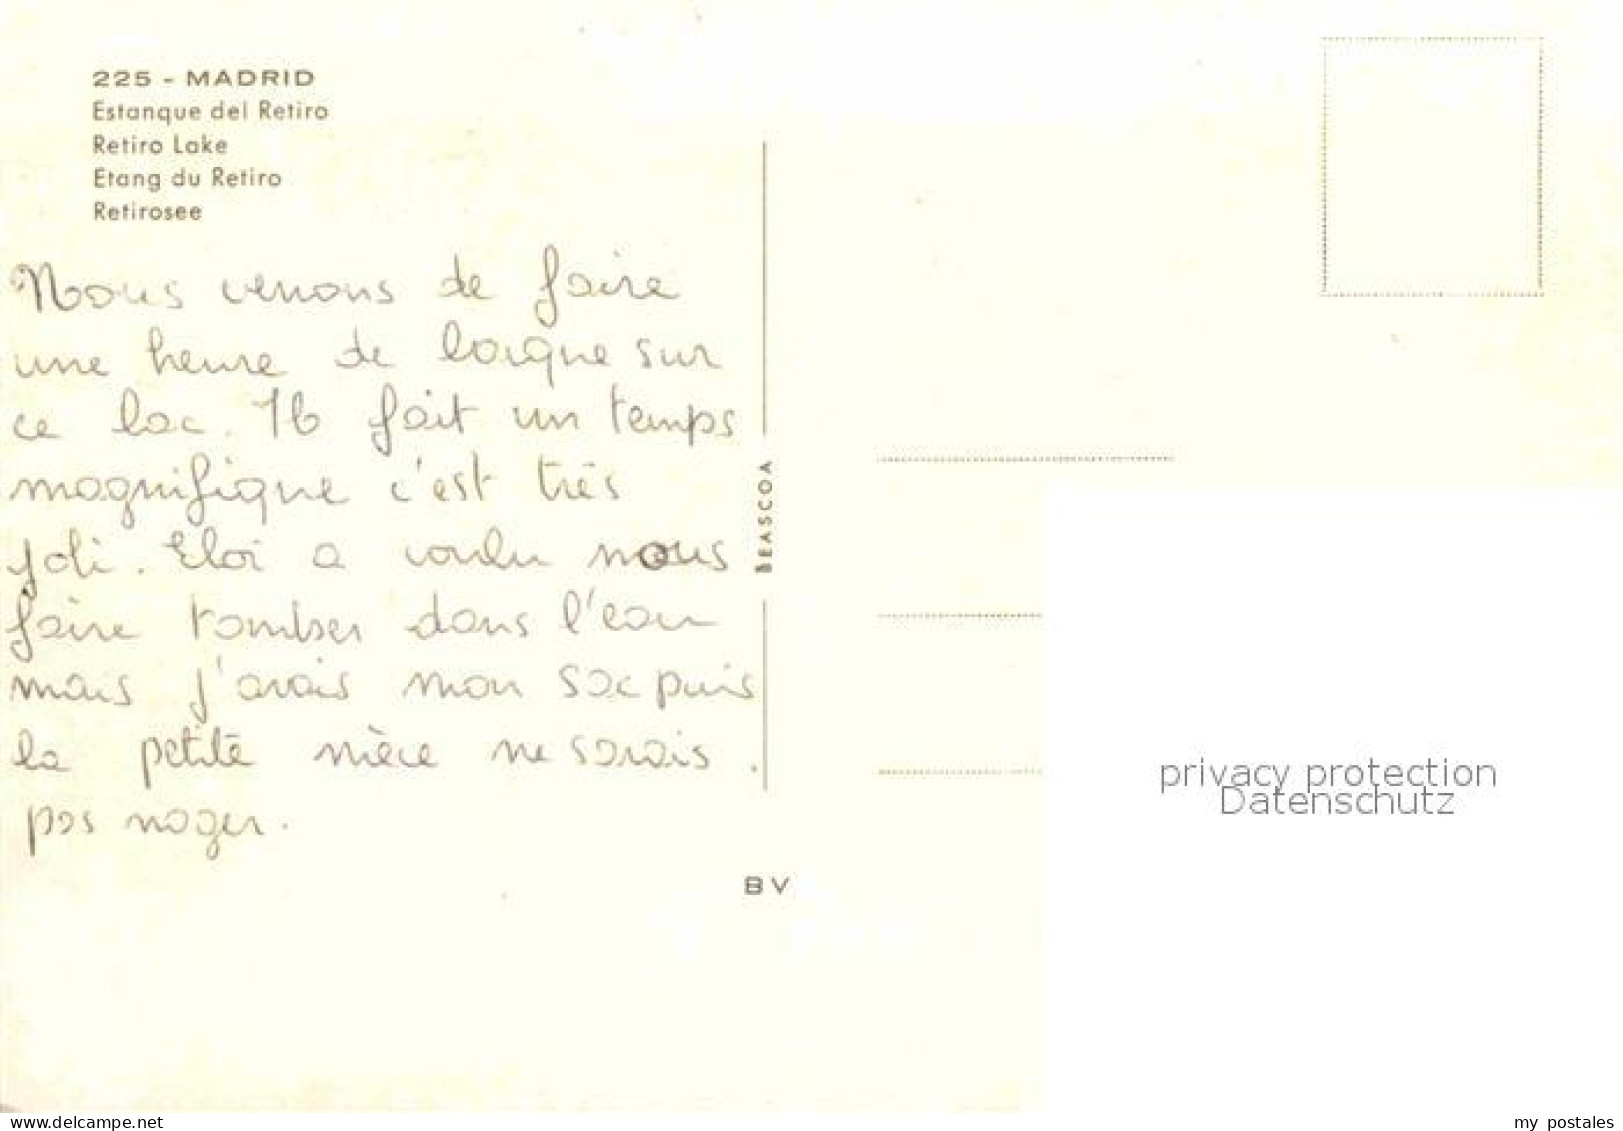 225 - MADRID
Estanque del Retiro
Retiro Lake
Etang du Retiro
Retirosee
Nous venons de faire
une heure de barque sur
ce lac. Il fait un temps
magnifique c'est très
joli. Eloi a voulu nous
faire tomber dans l'eau
mais j'avais mon sac puis
la petite nièce ne savais
pas nager.
BEASCOA
BV
privacy protection
Datenschutz
www.delcampe.net
my_postales